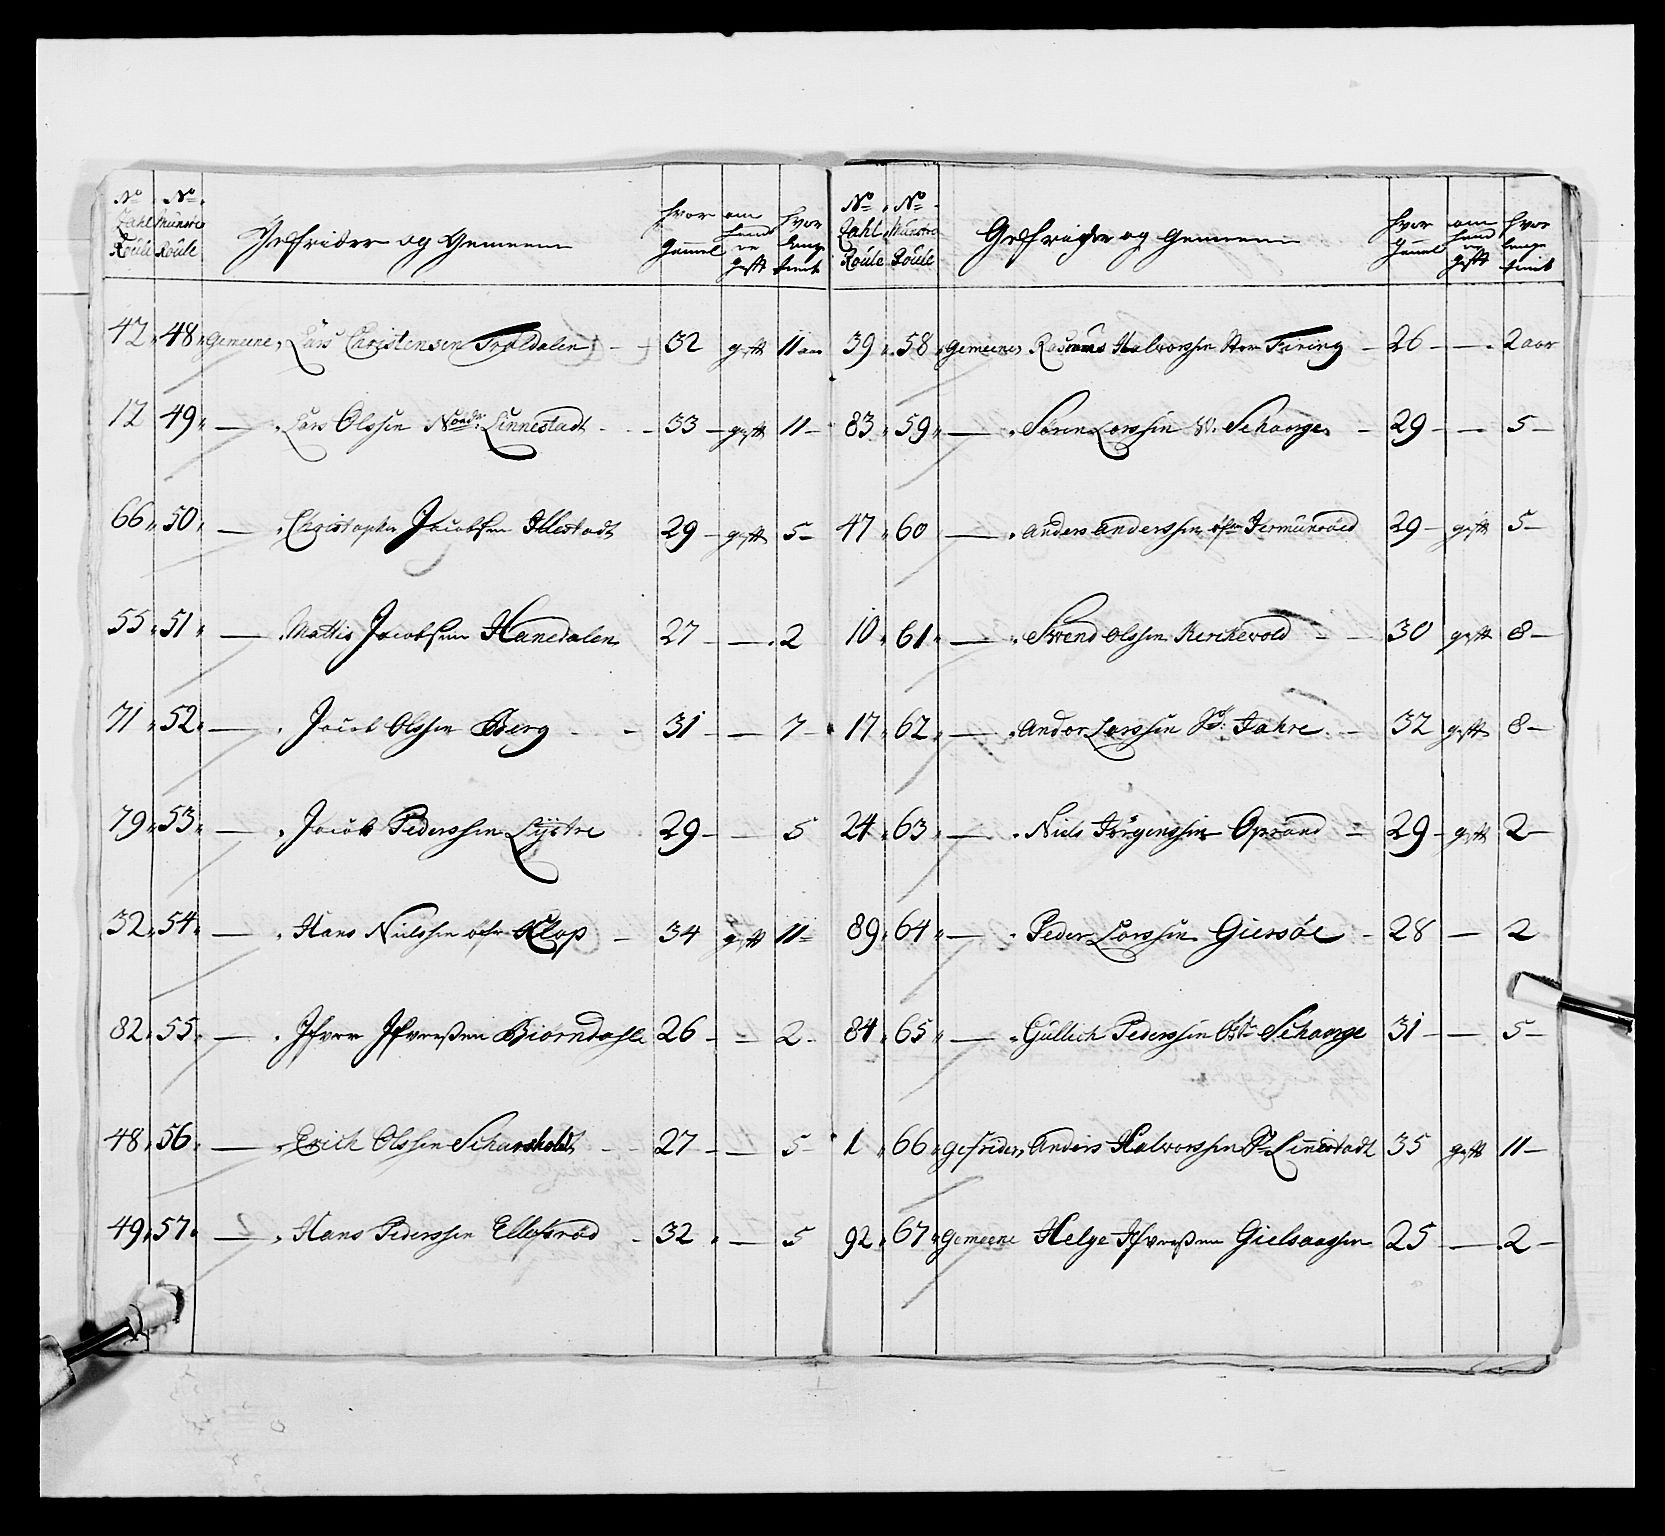 No Zahl Roule | No Munster Roule | Gefreider og Gemeene | hvor gammel | om hand er gift | hvor lenge tient
42 48 Gemeene Lars Christensen Traldalen 32 gift 11 aar
12 49 — Lars Olssen Nordr: Linnestadt 33 gift 11
66 50 — Christopher Jacobsen Illestadt 29 gift 5
55 51 — Mattis Jacobsen Hanedalen 27 — 2
71 52 — Jacob Olssen Berg 31 — 7
79 53 — Jacob Pederssen Lystre 29 — 5
32 54 — Hans Nielssen öfr Klop 34 gift 11
82 55 — Ifver Ifverßen Biörndahle 26 — 2
48 56 — Erich Olssen Scharsholdt 27 — 5
49 57 — Hans Pederssen Ellefsröd 32 — 5
No Zahl Roule | No Munster Roule | Gefreider og Gemeene | hvor gammel | om hand er gift | hvor lenge tient
39 58 Gemeene Rasmus Halvorssen Stor Firing 26 — 2 aar
83 59 — Sören Larssen V: Schaarge 29 — 5
47 60 — Anders Anderssen öfr Jermunröed 29 gift 5
10 61 — Svend Olssen Kerckevold 30 gift 8
17 62 — Andor Larssen Sö: Jahre 32 gift 8
24 63 — Niels Jörgenssen Oprand 29 gift 2
89 64 — Peder Larssen Giersöe 28 — 2
84 65 — Gullich Pederssen Östr Schaarge 31 — 5
1 66 Gefreider Anders Halvorssen Sr Linnestadt 35 gift 11
92 67 Gemeene Helge Ifverßen Gielsaasen 25 — 2